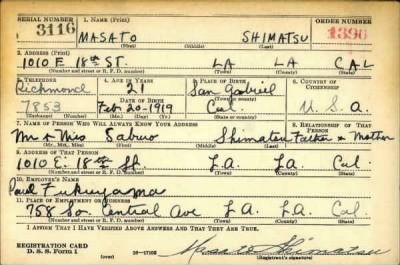 SERIAL NUMBER 1. NAME (Print) ORDER NUMBER
3116 MASATO SHIMATSU 1396
(First) (Middle) (Last)
2. ADDRESS (Print)
1010 E 18th ST. LA LA CAL
(Number and street or R. F. D. number) (Town) (County) (State)
3. TELEPHONE 4. AGE IN YEARS 5. PLACE OF BIRTH 6. COUNTRY OF CITIZENSHIP
Richmond 21 San Gabriel
DATE OF BIRTH (Town or county)
7853 Feb 20-1919 Cal. U.S.A.
(Mo.) (Day) (Yr.) (State or country)
7. NAME OF PERSON WHO WILL ALWAYS KNOW YOUR ADDRESS 8. RELATIONSHIP OF THAT PERSON
Mr & Mrs Saburo Shimatsu Father & Mother
(Mr., Mrs., Miss) (First) (Middle) (Last)
9. ADDRESS OF THAT PERSON
1010 E. 18th St L.A. L.A. Cal.
(Number and street or R. F. D. number) (Town) (County) (State)
10. EMPLOYER'S NAME
Paul Fukuyama
11. PLACE OF EMPLOYMENT OR BUSINESS
758 So. Central Ave L.A. L.A. Cal.
(Number and street or R. F. D. number) (Town) (County) (State)
I AFFIRM THAT I HAVE VERIFIED ABOVE ANSWERS AND THAT THEY ARE TRUE.
REGISTRATION CARD
D. S. S. Form 1 (over) 16-17105 Masato Shimatsu
(Registrant's signature)